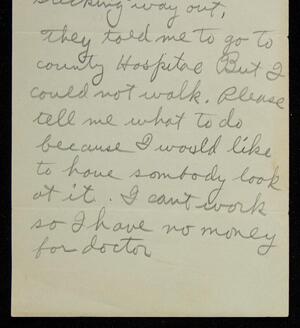 sticking way out,
They told me to go to
county Hospital But I
could not walk. Please
tell me what to do
because I would like
to have sombody look
at it. I cant work
so I have no money
for doctor